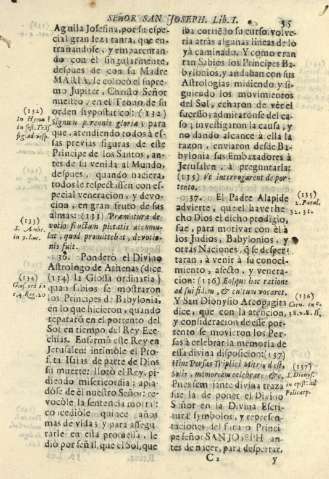 SEÑOR SAN JOSEPH. Lib. I. 35
Aguila Josefina, por su espe-
cial gran
trañandose, y emparentan-
do con el singularmente,
despues de con su Madre
MARIA, se colocò el supre-
mo Jupiter, Christo Señor
nuestro, en el Tonan de su
orden hypostatico: (132)
signum provenit gloria: para
que, atendiendo todos à es-
sas previas figuras de este
Principe de los Santos, an-
tes de venida al Mundo,
despues, quando naciera,
todos le respectassen con es-
pecial veneracion, y devo-
cion, en gran fruto de sus
almas: (133)
fructum pietatis
lat, quod
nis fuit.
36. Ponderò el Divino
Astrologo de Athenas (dice
(134) la Glossa ordinaria)
quan sabios se mostraron
los Principes de Babylonia,
en lo que hicieron, quando
repararon en el portento del
Sol en tiempo del Rey Eze-
chias. Enfermò este Rey en
Jerusalen intimòle el Pro-
feta Isaias de parte de Dios
su muerte: llorò el Rey, pi-
diendo misericordia: apia-
dòse de èl nuestro Señor: re-
vocòle la sentencia mortal:
concediòle quince años
mas de vida: y para assegu-
rarle en esta promessa, le
diò por señal, que el Sol, que
iba corriendo su curso, volve-
ria atràs algunas lineas de lo
yà caminado. Y como eran
tan Sabios los Principes Ba-
bylonios, y andaban con sus
Astrologias midiendo, y si-
guiendo los movimientos
del Sol, echaron de vèr el
sucesso; admiraronse del ca-
so; investigaron la causa, y
no dando alcance à ella la
razon, enviaron desde Ba-
bylonia sus Embaxadores à
Jerusalen, à preguntarla:
(135) Vt interrogarent de por-
tento.
37. El Padre Alapide
advierte, que el haver he-
cho Dios el dicho prodigio,
fue, para motivar con èl à
los Judios, Babylonios, y
otras Naciones, que desper-
taran, à venir à su conoci-
miento, afecto, y venera-
cion: (136)
ad sui
Y San Dionysio Areopagita
dice, que con la atencion,
y consideracion de este por-
tento se movieron los Per-
sas à celebrar la memoria de
essa divina disposicion: (137)
Hinc Persas
memoriam celebrare, &c.
Pues semejante divina traza
fue la de poner el Divino
Señor en la Divina Escri-
tura symbolos, y represen-
taciones del futuro Princi-
pe señor SAN JOSEPH an-
tes de nacer, para despertar,
C2 y
(132)
(133)
(134)
(135)
2. Paral.
32. 31.
(136)
(137)